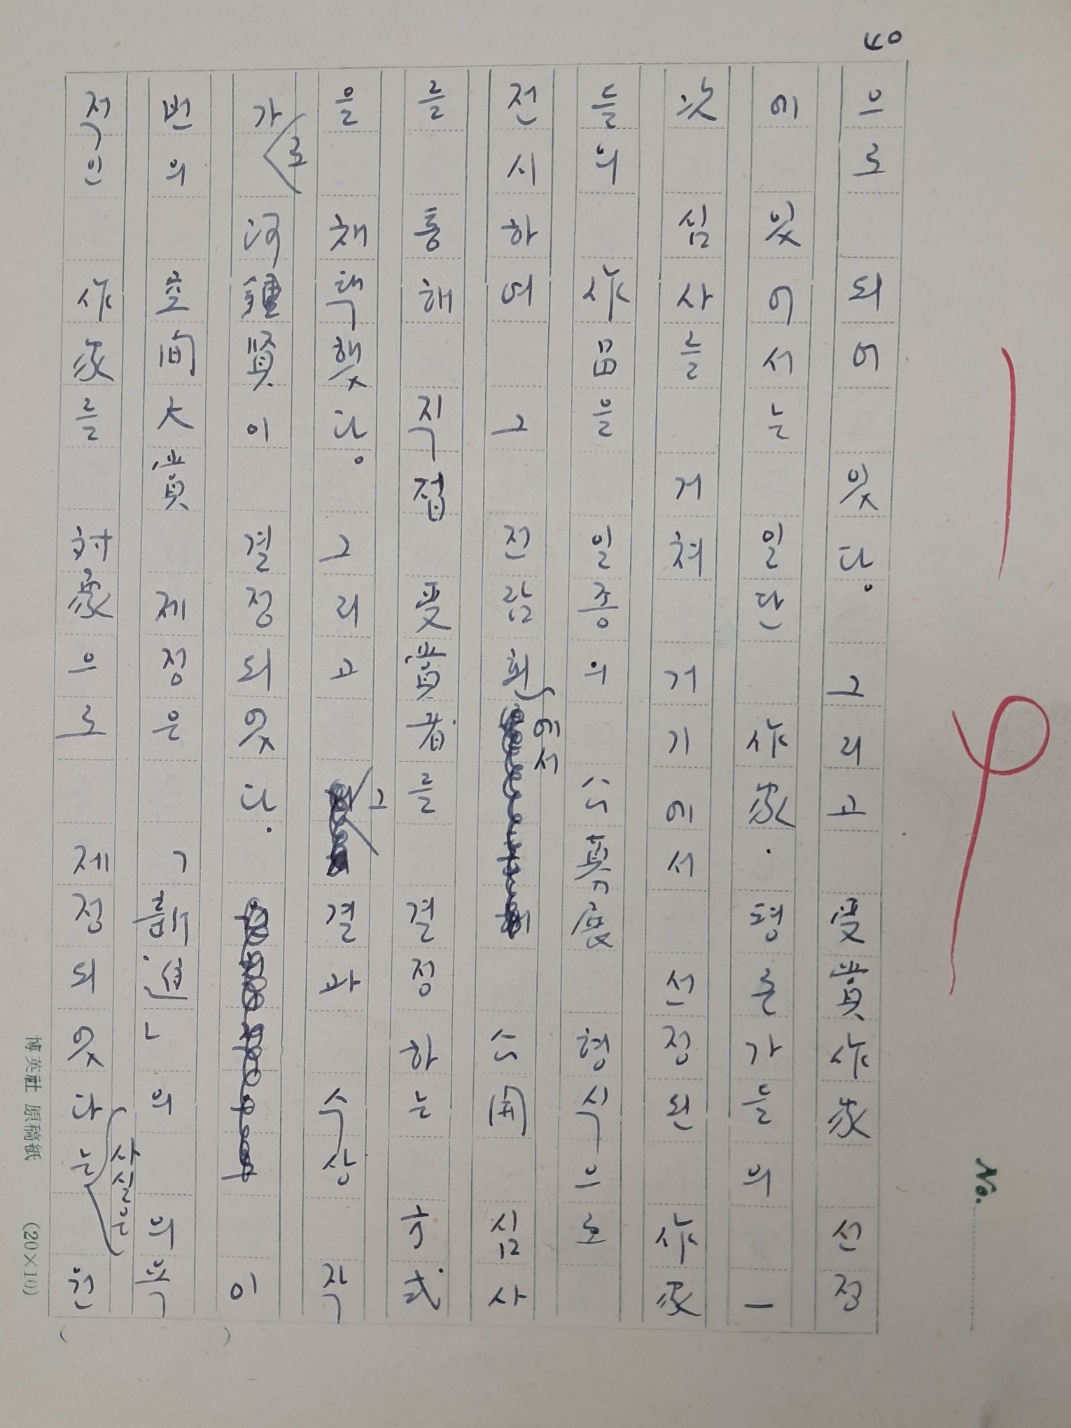 40
으로 되어 있다. 그리고 受賞作家 선정
에 있어서는 일단 作家·평론가들의 一
次 심사를 거쳐 거기에서 선정된 作家
들의 作品을 일종의 公募展 형식으로
전시하여 그 전람회에서 公開 심사
를 통해 직접 受賞者를 결정하는 方式
을 채택했다. 그리고 그 결과 수상 작
가로 河鍾賢이 결정되었다. 이
번의 空間大賞 제정은 의욕
적인 作家를 対象으로 제정되었다는 사실은
No.
博英社 原稿紙 (20×10)